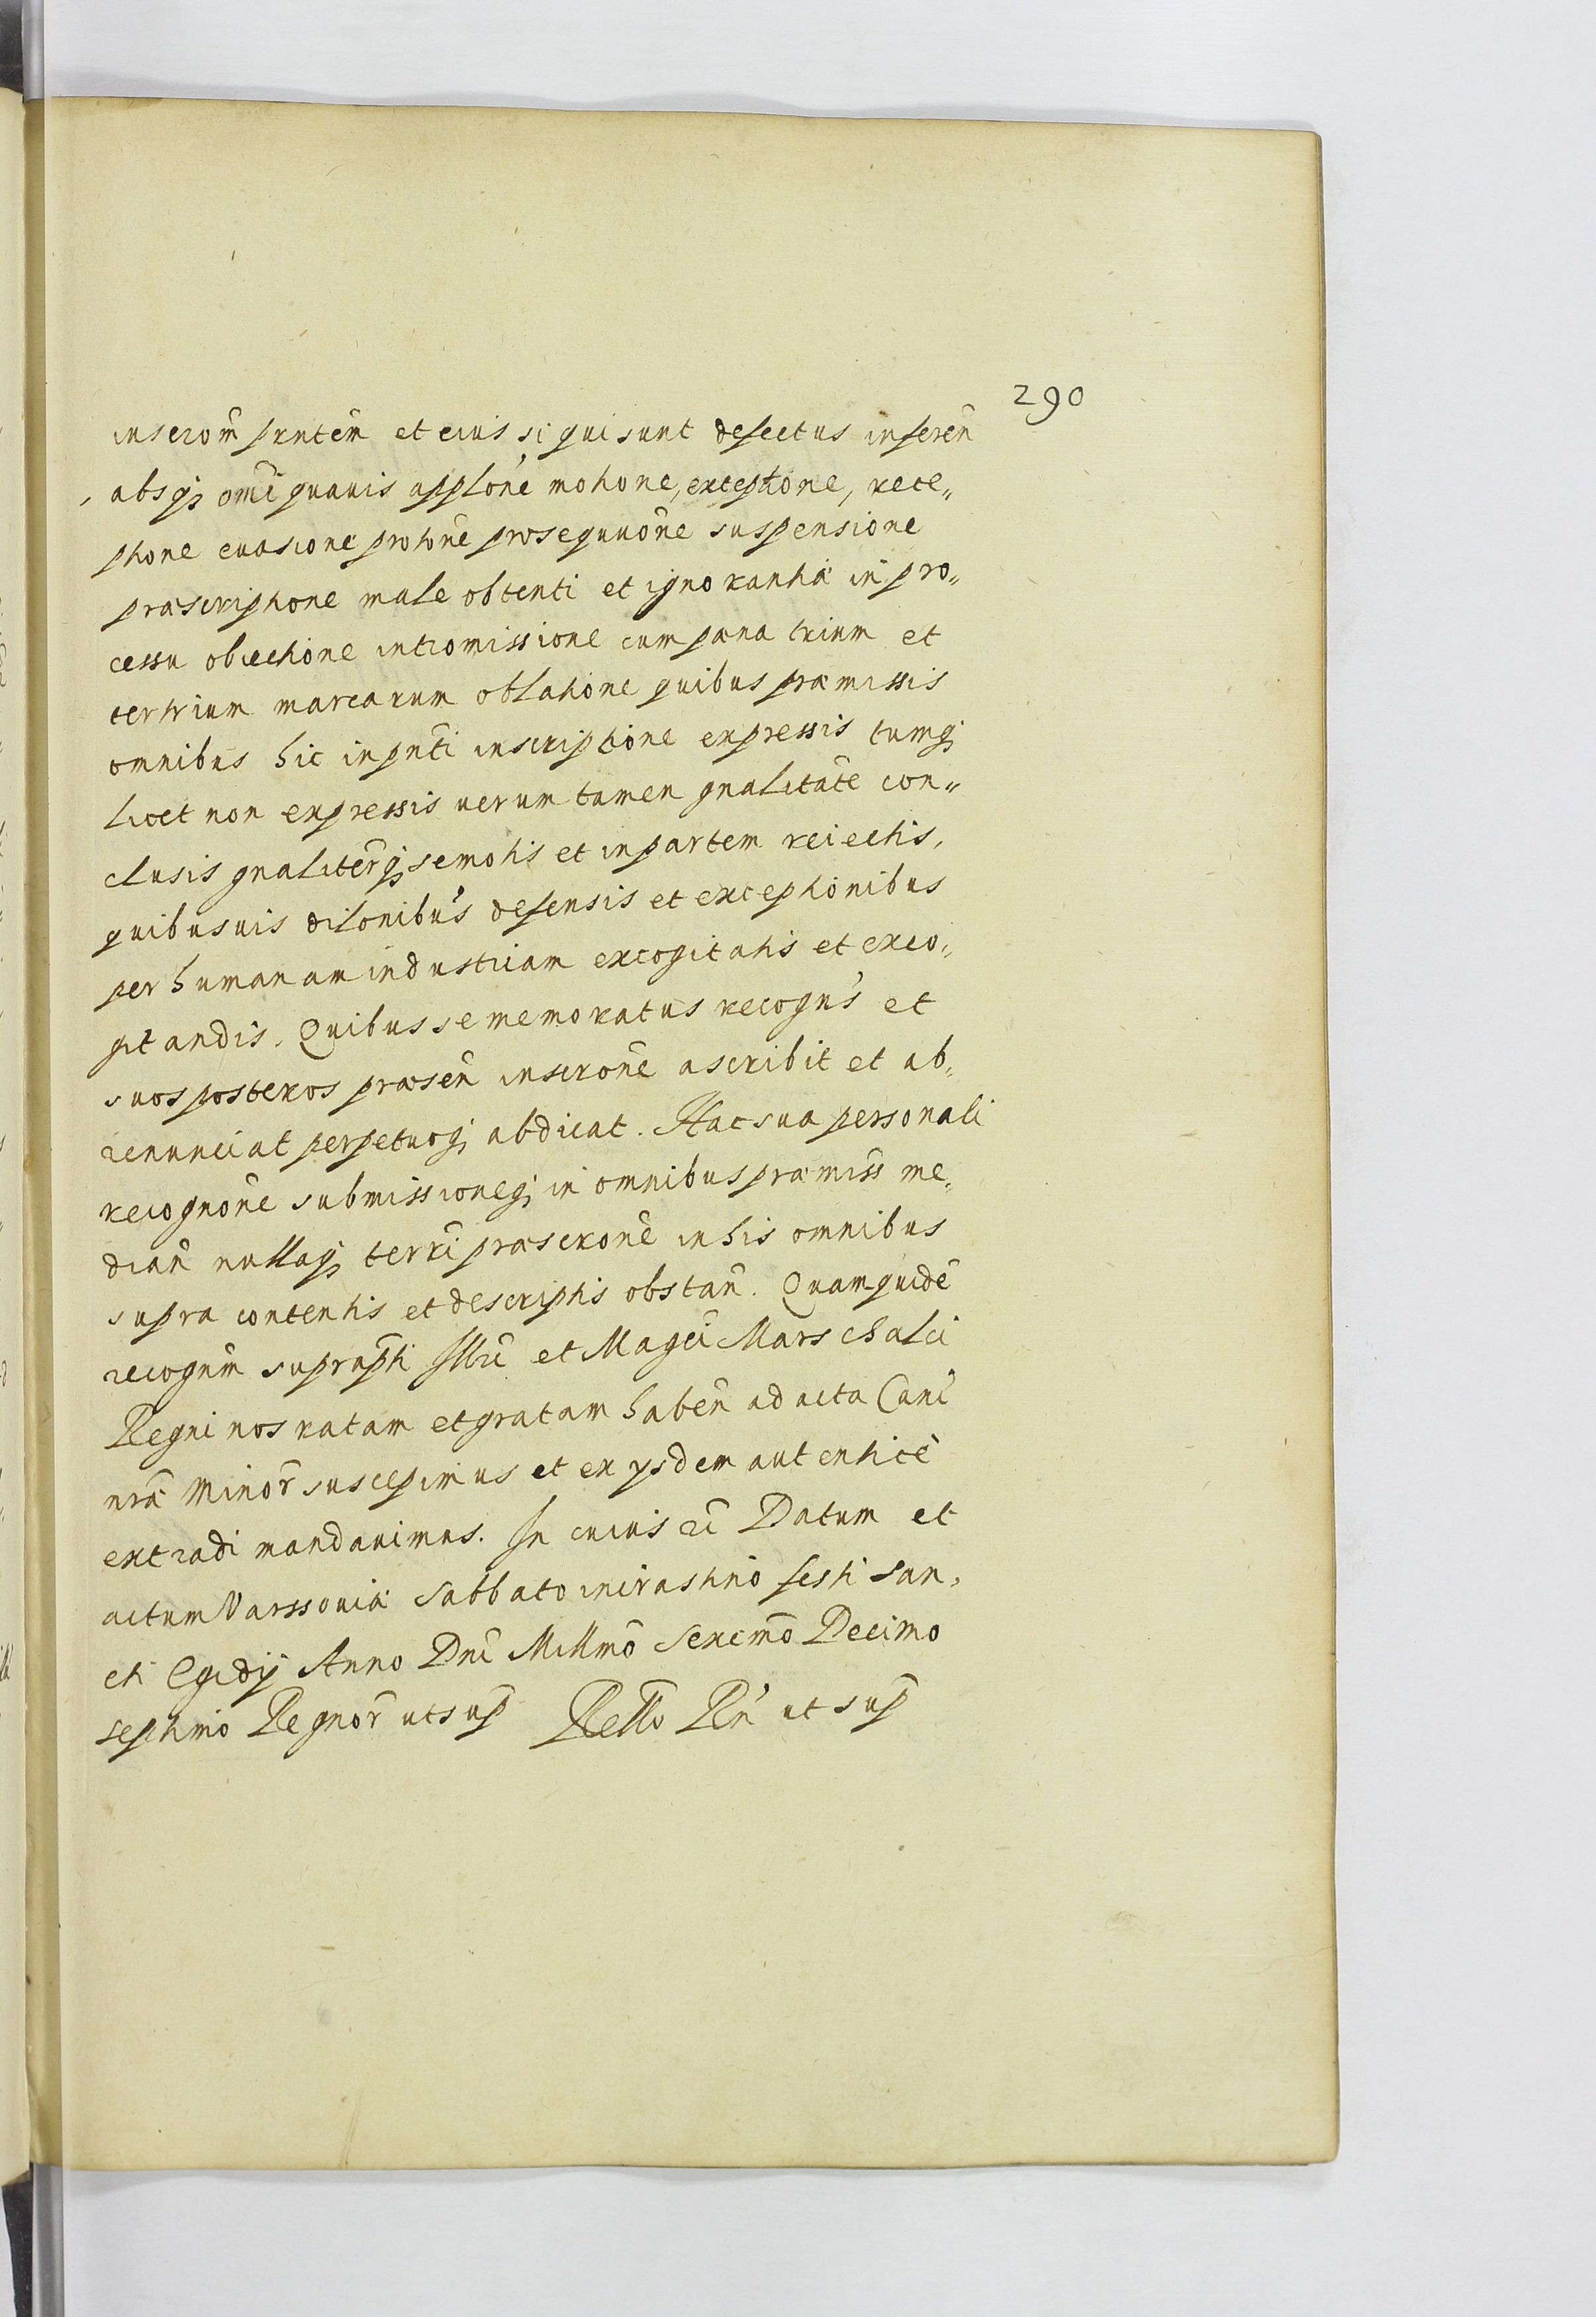 290
inscrom̃ prntem̃ et eius si qui sunt defectus inferen̄
absq; om̄i quauis applōne motione, exceptione, rece„
ptione euasione protōne prosequuōne suspensione
præscriptione male obtenti et ignorantiæ in pro„
cessu obiectione intromissione cum pæna trium et
ter trium marcarum oblatione quibus præmissis
omnibus hic in pn̄ti inscriptione expressis tumq;
licet non expressis uerum tamen gnalitate con„
clusis gnaliterq; semotis et in partem reiectis,
quibusuis dilonibus defensis et exceptionibus
per humanam industriam excogitatis et exco„
gitandis. Quibus se memoratus recogn̄s et
suos posteros præsen̄ inscrōne ascribit et ab„
renunciat perpetuoq; abdicat. Hac sua personali
recognōne submissioneq; in omnibus præmiss̄ me„
dian̄ nullaq; terrī præscrōne in his omnibus
supra contentis et descriptis obstan̄. Quamquidē
recognm̄ suprapti Illrī et Magcī Marschalci
Regni nos ratam et gratam haben̄ ad acta Canc̄
nrā Minor̄ suscepimus et ex ysdem autenticē
extradi mandauimus. In cuius rī Datum et
actum Varssouiæ Sabbato in crastino festi San„
cti Egidij Anno Dnī Millmō Sexcmō Decimo
septimo Regnor̄ ut sup̄ Rellō Rn̄ ut sup̄